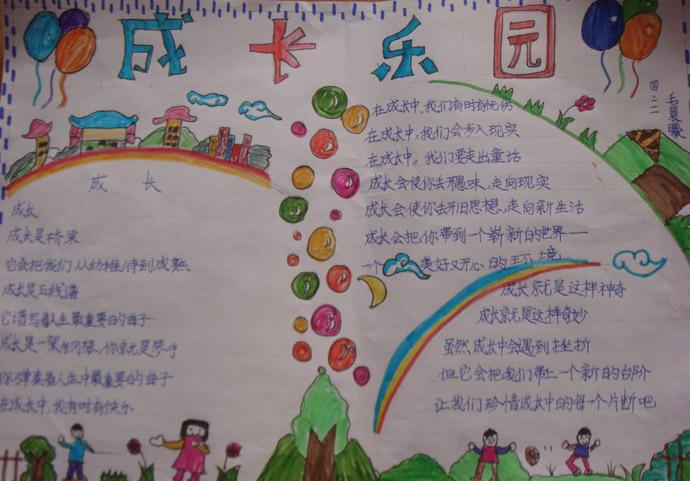 成长乐园
四.二
毛晨曦
成长
成长
成长是桥梁
它会把我们从幼稚,待到成熟
成长是五线谱
它谱写着人生最重要的母子
成长是一架钢琴,你就是琴手
你弹奏着人生中最重要的母子
在成长中,我有时有快乐
在成长中,我们有时有忧伤
在成长中,我们会步入现实
在成长中,我们要走出童话
成长会使你去开愚昧,走向现实
成长会使你去开旧思想,走向新生活
成长会把你带到一个崭新的世界——
一个 美好又开心的环境
成长就是这样神奇
成长就是这样奇妙
虽然成长中会遇到挫折
但它会把我们带上一个新的台阶
让我们珍惜成长中的每一个片断吧